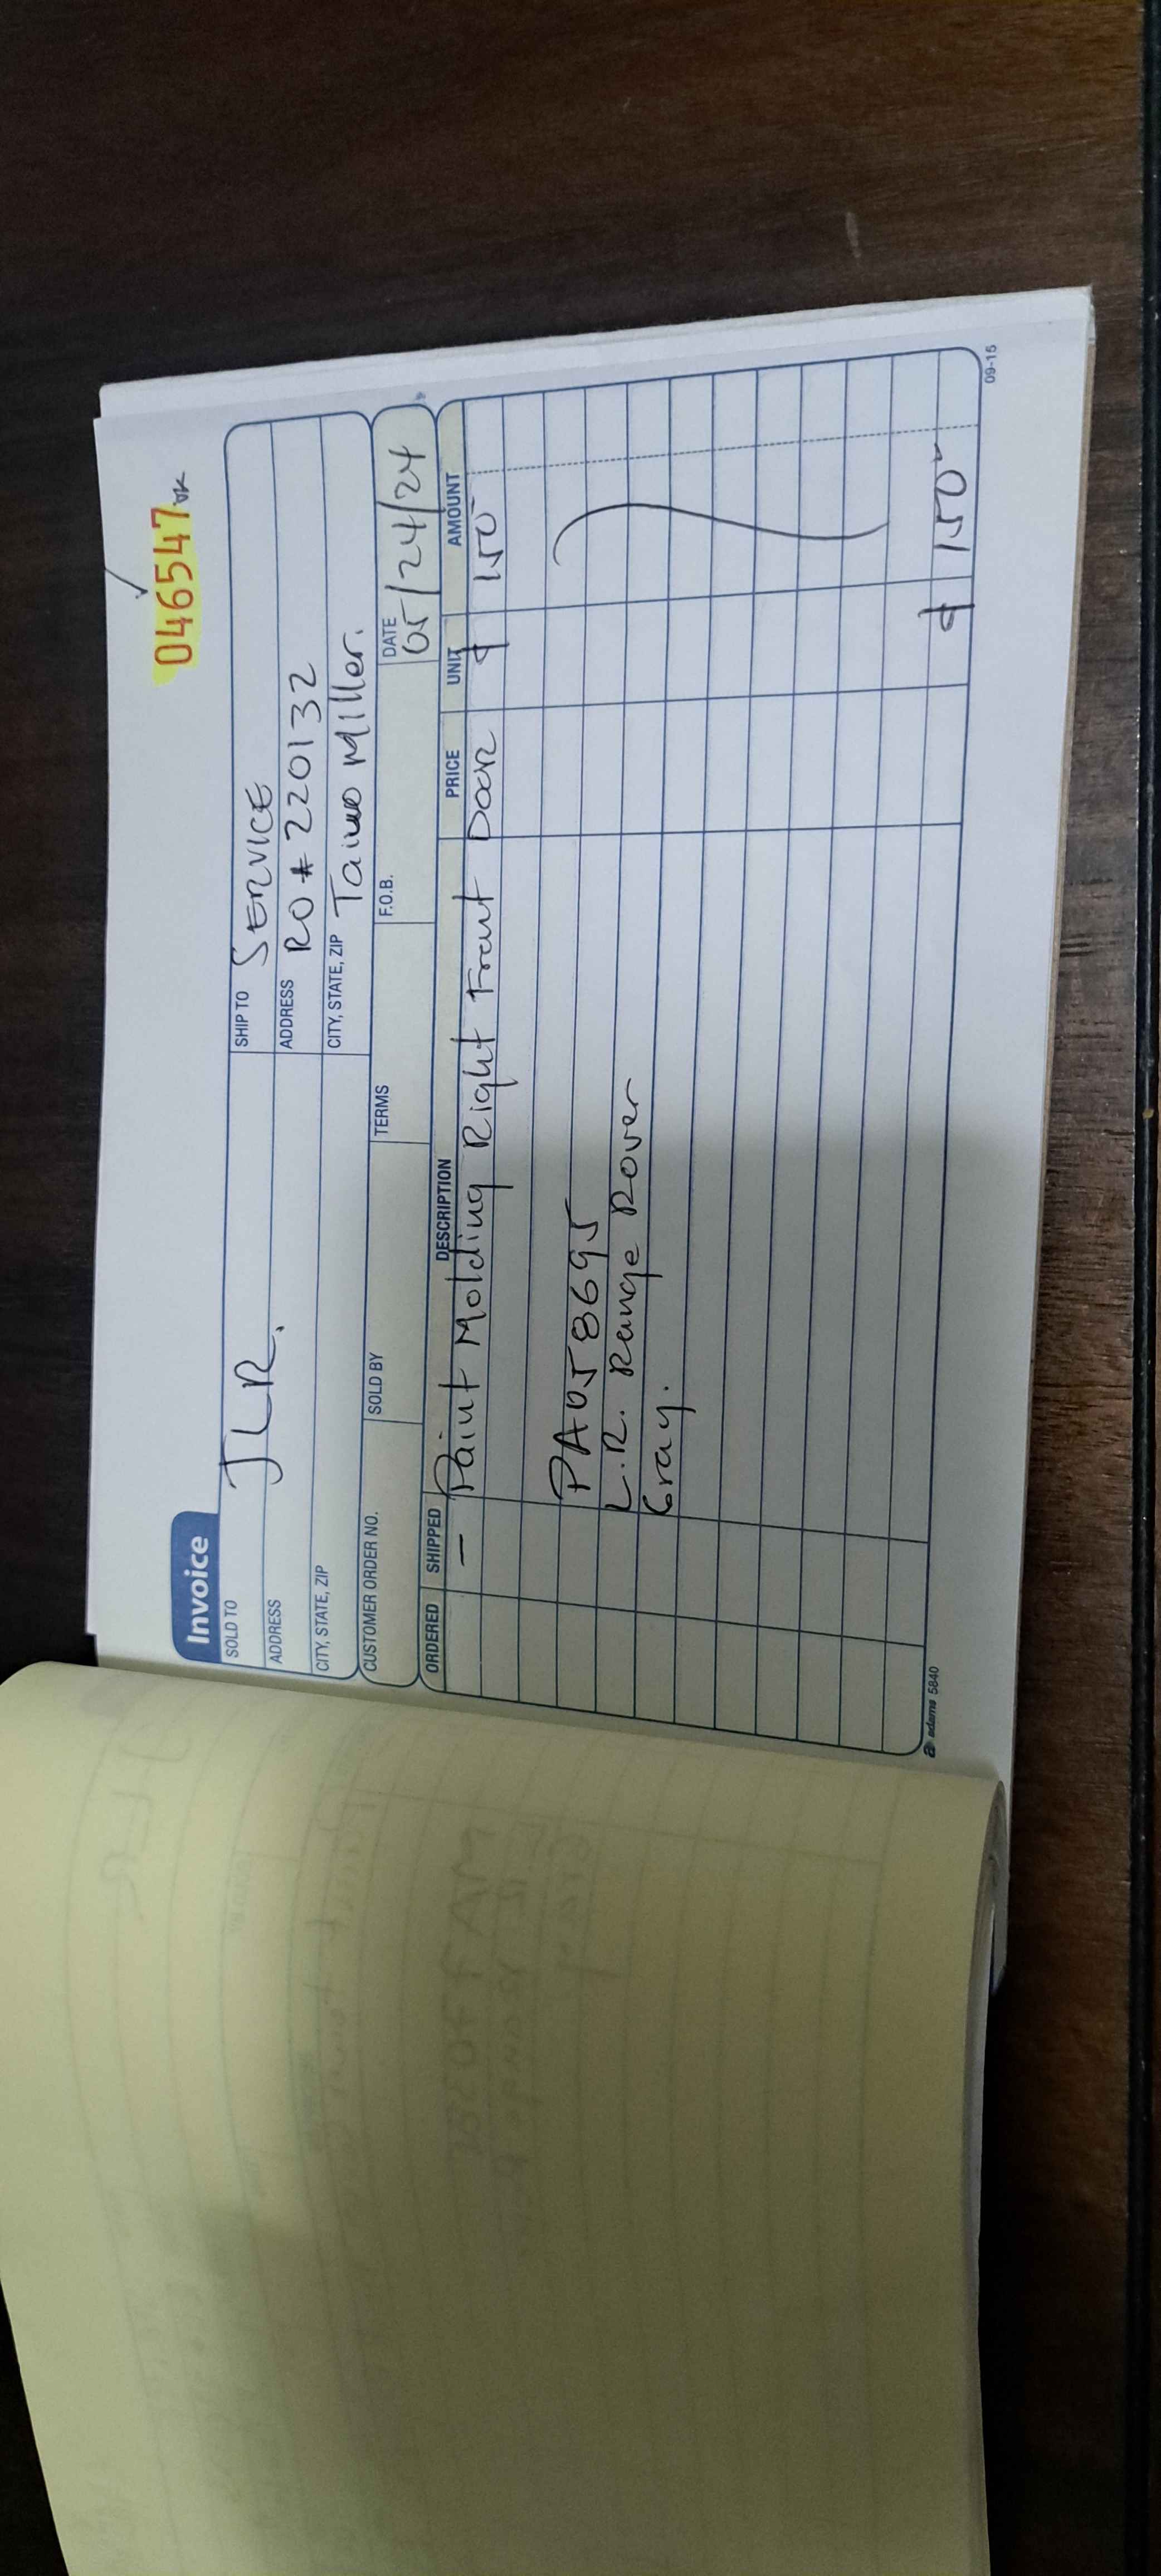 046547 OK
Invoice
SOLD TO JLR. SHIP TO SERVICE
ADDRESS ADDRESS RO # 220132
CITY, STATE, ZIP CITY, STATE, ZIP Taiwo Miller.
CUSTOMER ORDER NO. SOLD BY TERMS F.O.B. DATE 05/24/24
ORDERED SHIPPED DESCRIPTION PRICE UNIT AMOUNT
- Paint Molding Right Front Door $ 150
PA058695
L.R. Range Rover
Gray.
$ 150
adams 5840 09-15